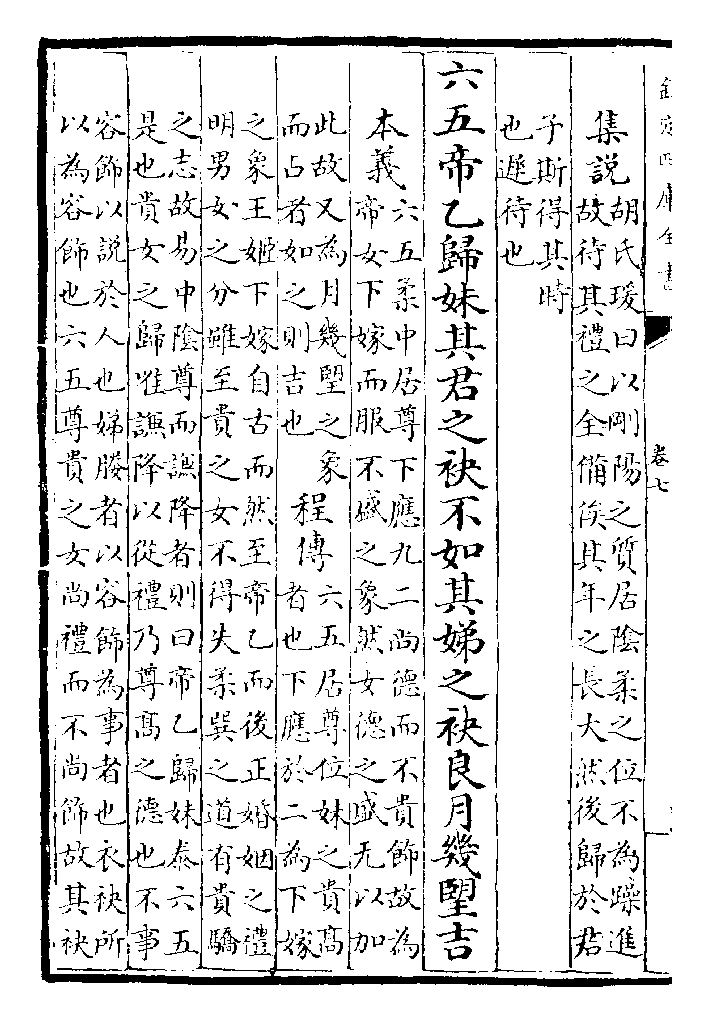 欽定四庫全書
卷七
集說 胡氏瑗曰以剛陽之質居陰柔之位不為躁進
故待其禮之全備俟其年之長大然後歸於君
子斯得其時
也遲待也
六五帝乙歸妹其君之袂不如其娣之袂良月幾望吉
本義 六五柔中居尊下應九二尚德而不貴飾故為
帝女下嫁而服不盛之象然女德之盛无以加
此故又為月幾望之象
而占者如之則吉也
程傳 六五居尊位妹之貴髙
者也下應於二為下嫁
之象王姬下嫁自古而然至帝乙而後正婚姻之禮
明男女之分雖至貴之女不得失柔巽之道有貴驕
之志故易中陰尊而謙降者則曰帝乙歸妹泰六五
是也貴女之歸唯謙降以從禮乃尊髙之德也不事
容飾以說於人也娣媵者以容飾為事者也衣袂所
以為容飾也六五尊貴之女尚禮而不尚飾故其袂